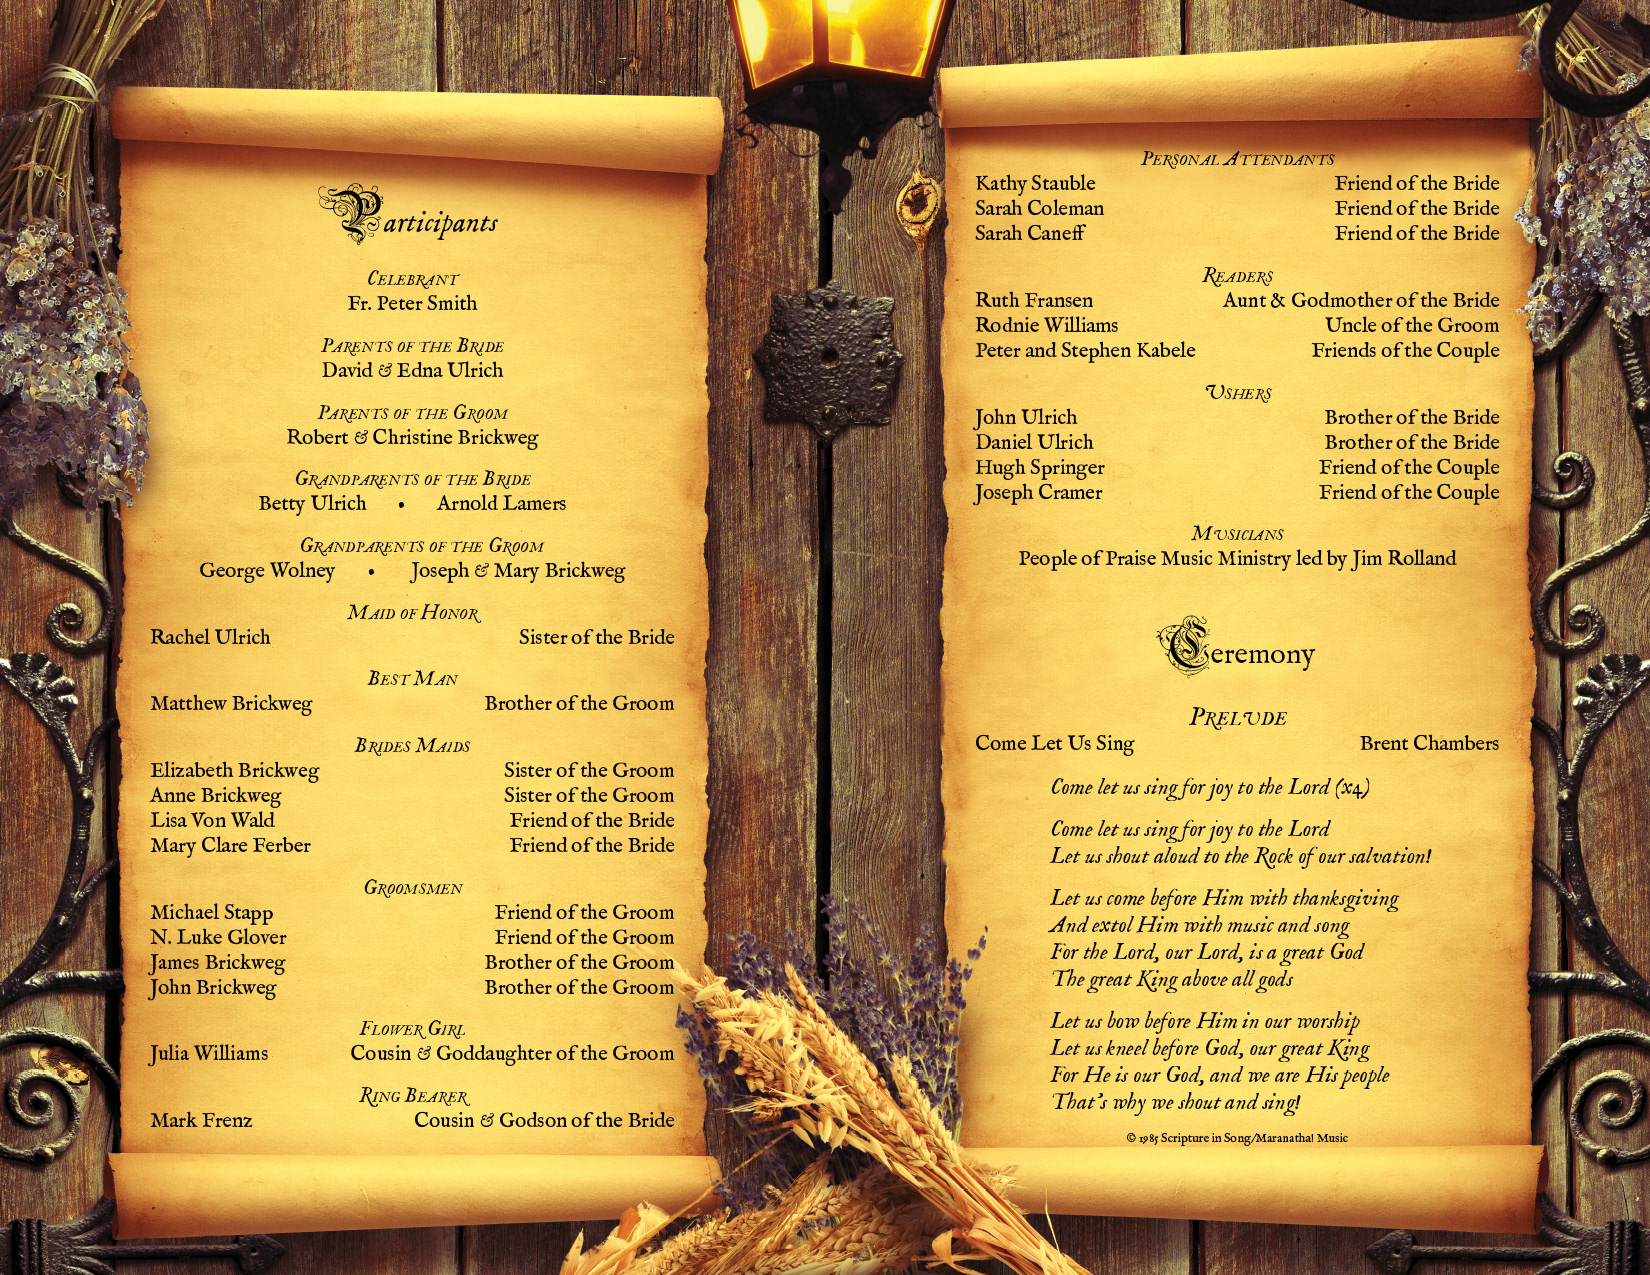 Participants
Celebrant
Fr. Peter Smith
Parents of the Bride
David & Edna Ulrich
Parents of the Groom
Robert & Christine Brickweg
Grandparents of the Bride
Betty Ulrich • Arnold Lamers
Grandparents of the Groom
George Wolney • Joseph & Mary Brickweg
Maid of Honor
Rachel Ulrich Sister of the Bride
Best Man
Matthew Brickweg Brother of the Groom
Brides Maids
Elizabeth Brickweg Sister of the Groom
Anne Brickweg Sister of the Groom
Lisa Von Wald Friend of the Bride
Mary Clare Ferber Friend of the Bride
Groomsmen
Michael Stapp Friend of the Groom
N. Luke Glover Friend of the Groom
James Brickweg Brother of the Groom
John Brickweg Brother of the Groom
Flower Girl
Julia Williams Cousin & Goddaughter of the Groom
Ring Bearer
Mark Frenz Cousin & Godson of the Bride
Personal Attendants
Kathy Stauble Friend of the Bride
Sarah Coleman Friend of the Bride
Sarah Caneff Friend of the Bride
Readers
Ruth Fransen Aunt & Godmother of the Bride
Rodnie Williams Uncle of the Groom
Peter and Stephen Kabele Friends of the Couple
Ushers
John Ulrich Brother of the Bride
Daniel Ulrich Brother of the Bride
Hugh Springer Friend of the Couple
Joseph Cramer Friend of the Couple
Musicians
People of Praise Music Ministry led by Jim Rolland
Ceremony
Prelude
Come Let Us Sing Brent Chambers
Come let us sing for joy to the Lord (x4)
Come let us sing for joy to the Lord
Let us shout aloud to the Rock of our salvation!
Let us come before Him with thanksgiving
And extol Him with music and song
For the Lord, our Lord, is a great God
The great King above all gods
Let us bow before Him in our worship
Let us kneel before God, our great King
For He is our God, and we are His people
That's why we shout and sing!
© 1985 Scripture in Song/Maranatha! Music